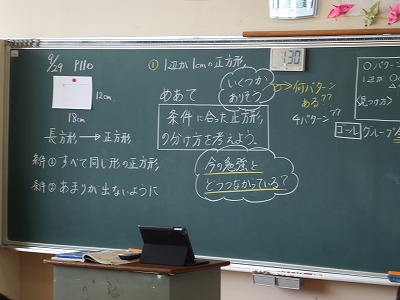 9/29 P110
12cm
18cm
長方形→正方形
条件①すべて同じ形の正方形
条件②あまりが出ないように
① 1辺が1cmの正方形
いくつか
ありそう
めあて
条件に合った正方形
の分け方を考えよう。
今の勉強と
どうつながっている?
何パターン
ある??
4パターン??
1:30
○パターン
1辺
〈見つけ方〉
ゴール
グループ